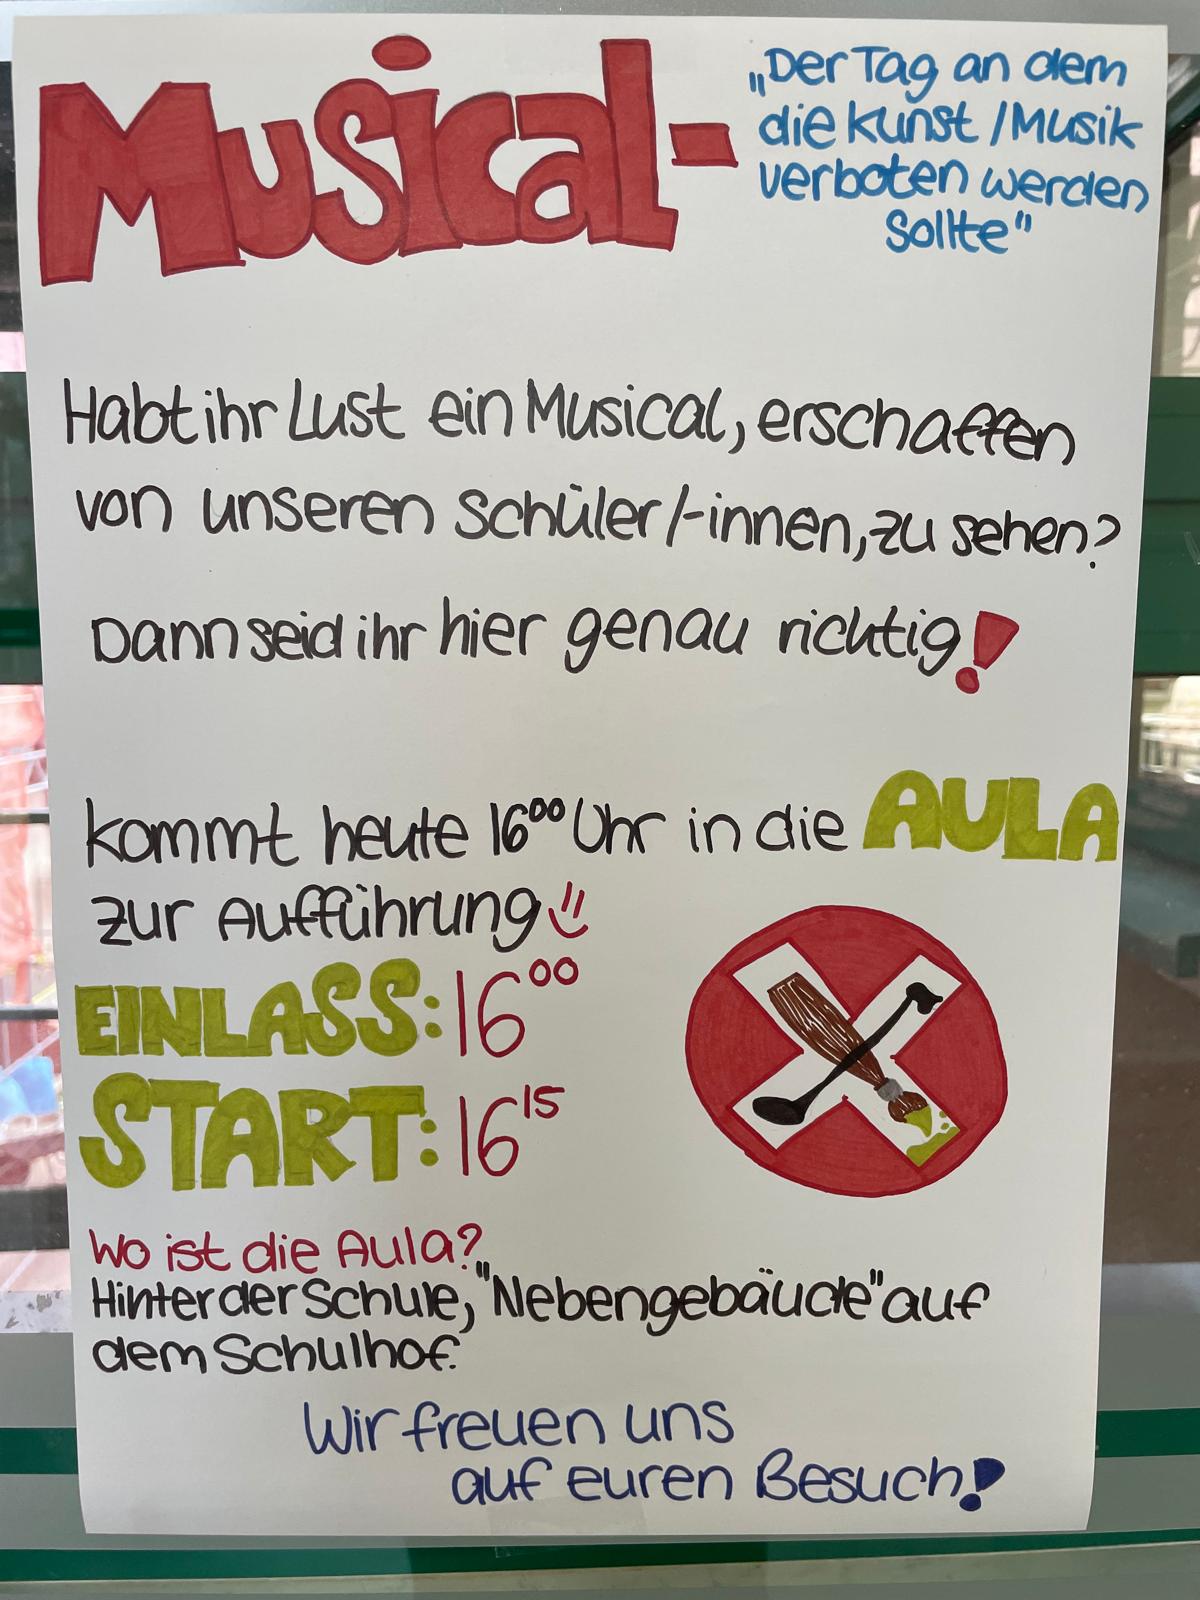 Musical-
„Der Tag an dem
die Kunst/Musik
verboten werden
sollte"
Habt ihr Lust ein Musical, erschaffen
von unseren Schüler/-innen, zu sehen?
Dann seid ihr hier genau richtig!
Kommt heute 16⁰⁰ Uhr in die AULA
zur Aufführung
EINLASS: 16⁰⁰
START: 16¹⁵
Wo ist die Aula?
Hinter der Schule, "Nebengebäude" auf
dem Schulhof.
Wir freuen uns
auf euren Besuch!